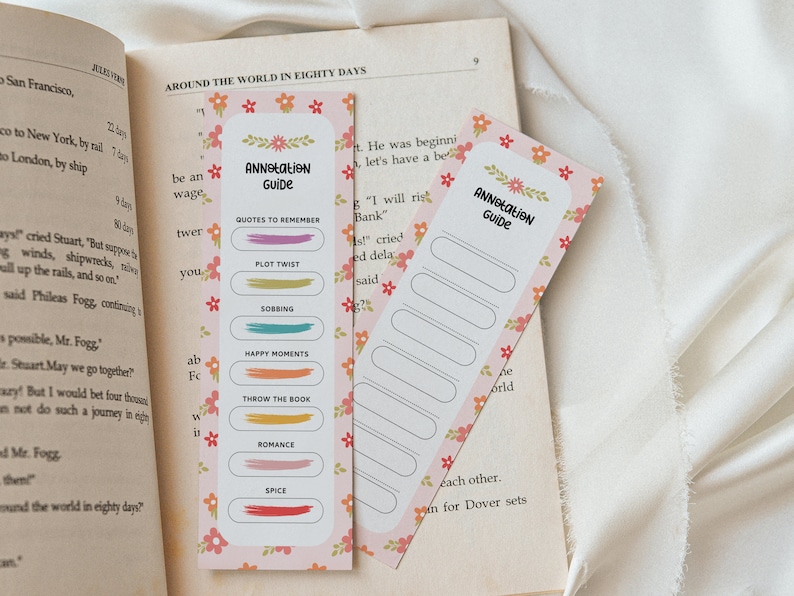 JULES VERNE
o San Francisco,
22 days
co to New York, by rail 7 days
to London, by ship
9 days
80 days
ays!" cried Stuart, "But suppose the
winds, shipwrecks, railway
pull up the rails, and so on."
said Phileas Fogg, continuing to
s possible, Mr. Fogg,"
r. Stuart.May we go together?"
razy! But I would bet four thousand
an not do such a journey in eighty
d Mr. Fogg.
them!"
around the world in eighty days?"
an."
AROUND THE WORLD IN EIGHTY DAYS 9
art. He was beginni
be an
n, let's have a be
wage
g "I will ris
Bank"
twen
ds!" cried
you
ed delay
said
g?"
ab
Fo
the
world
w
in
each other.
an for Dover sets
ANNOTATION
GUIDE
QUOTES TO REMEMBER
PLOT TWIST
SOBBING
HAPPY MOMENTS
THROW THE BOOK
ROMANCE
SPICE
ANNOTATION
GUIDE